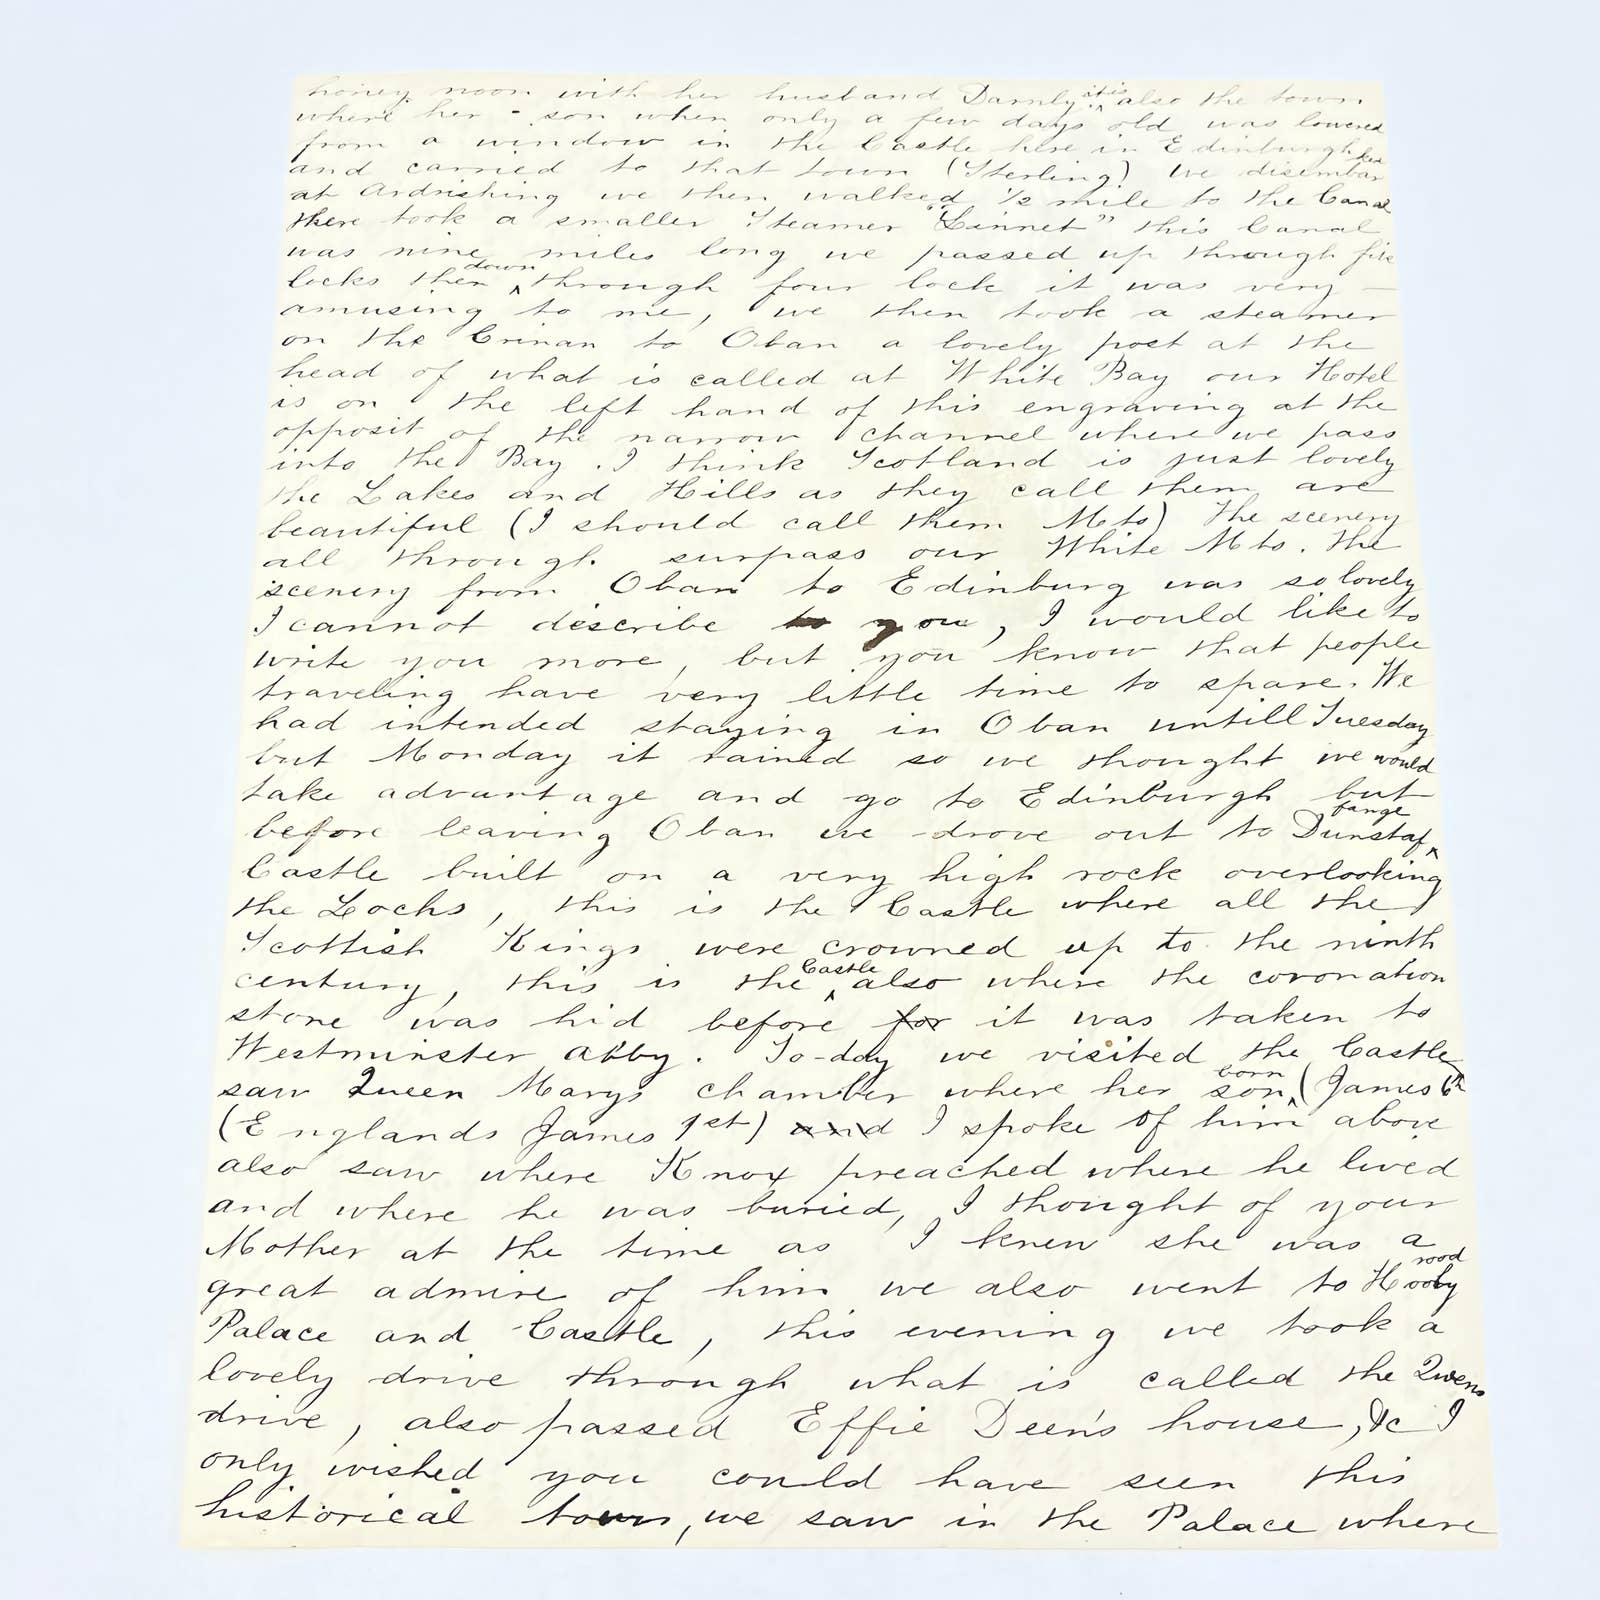 honey moon with her husband Darnly it is also the town
where her - son when only a few days old was lowered
from a window in the Castle here in Edinburgh
and carried to that town (Sterling) we disembarked
at Ardrishing we then walked 1/2 mile to the Canal
there took a smaller Steamer "Linnet" this Canal
was nine miles long we passed up through five
locks then down through four lock it was very
amusing to me, we then took a steamer
on the Crinan to Oban a lovely post at the
head of what is called at White Bay our Hotel
is on the left hand of this engraving at the
opposit of the narrow channel where we pass
into the Bay. I think Scotland is just lovely
the Lakes and Hills as they call them are
beautiful (I should call them Mts) The scenery
all through. surpass our White Mts. the
scenery from Oban to Edinburg was so lovely
I cannot describe to you, I would like to
write you more, but you know that people
traveling have very little time to spare. We
had intended staying in Oban untill Tuesday
but Monday it rained so we thought we would
take advantage and go to Edinburgh but
before leaving Oban we drove out to Dunstaffange
Castle built on a very high rock overlooking
the Lochs, this is the Castle where all the
Scottish Kings were crowned up to the ninth
century, this is the Castle also where the coronation
stone was hid before for it was taken to
Westminster abby. To-day we visited the Castle
saw Queen Marys chamber where her son born (James 6th
(Englands James 1st) and I spoke of him above
also saw where Knox preached where he lived
and where he was buried, I thought of your
Mother at the time as I knew she was a
great admire of him we also went to Hooly rood
Palace and Castle, this evening we took a
lovely drive through what is called the Qwens
drive, also passed Effie Deen's house, &c I
only wished you could have seen this
historical town, we saw in the Palace where